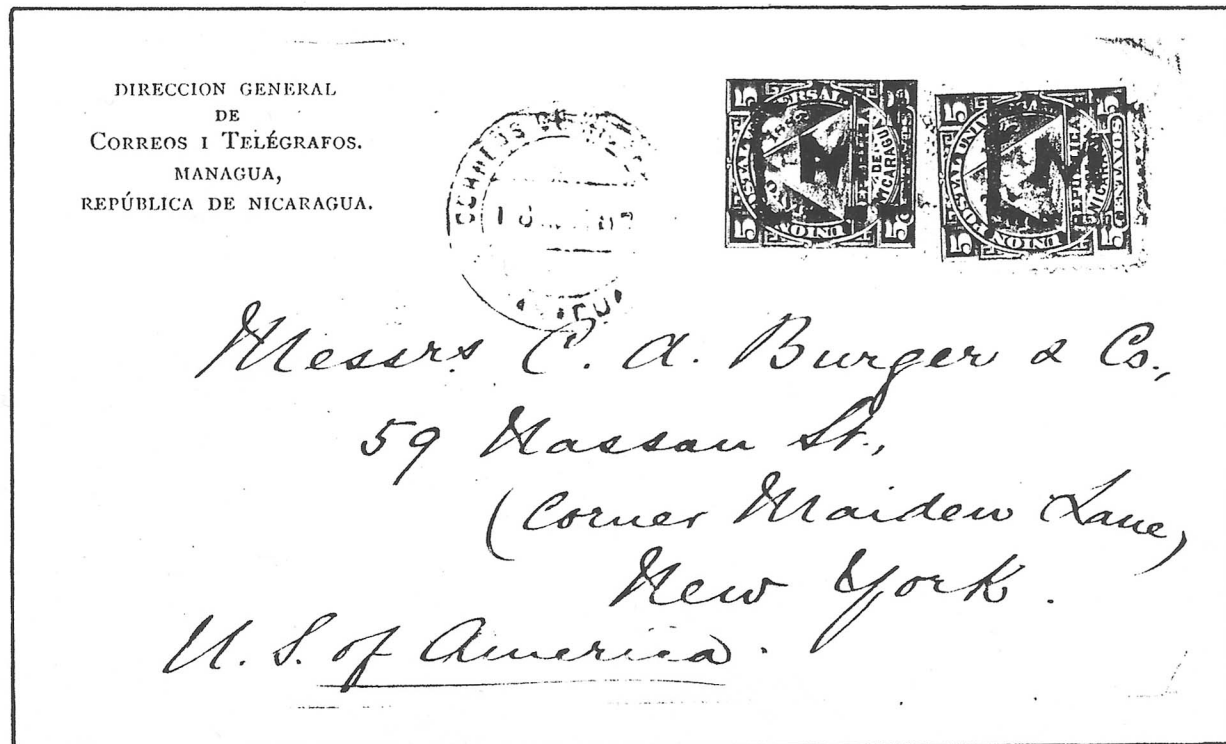 DIRECCION GENERAL
DE
CORREOS I TELÉGRAFOS.
MANAGUA,
REPÚBLICA DE NICARAGUA.
CORREOS DE
5 UNION POSTAL UNIVERSAL 5
REPUBLICA DE NICARAGUA
5 CENTAVOS 5
5 UNION POSTAL UNIVERSAL 5
REPUBLICA DE NICARAGUA
5 CENTAVOS 5
Messrs C. A. Burger & Co.,
59 Nassau St.,
(Corner Maiden Lane)
New York.
U. S. of America.